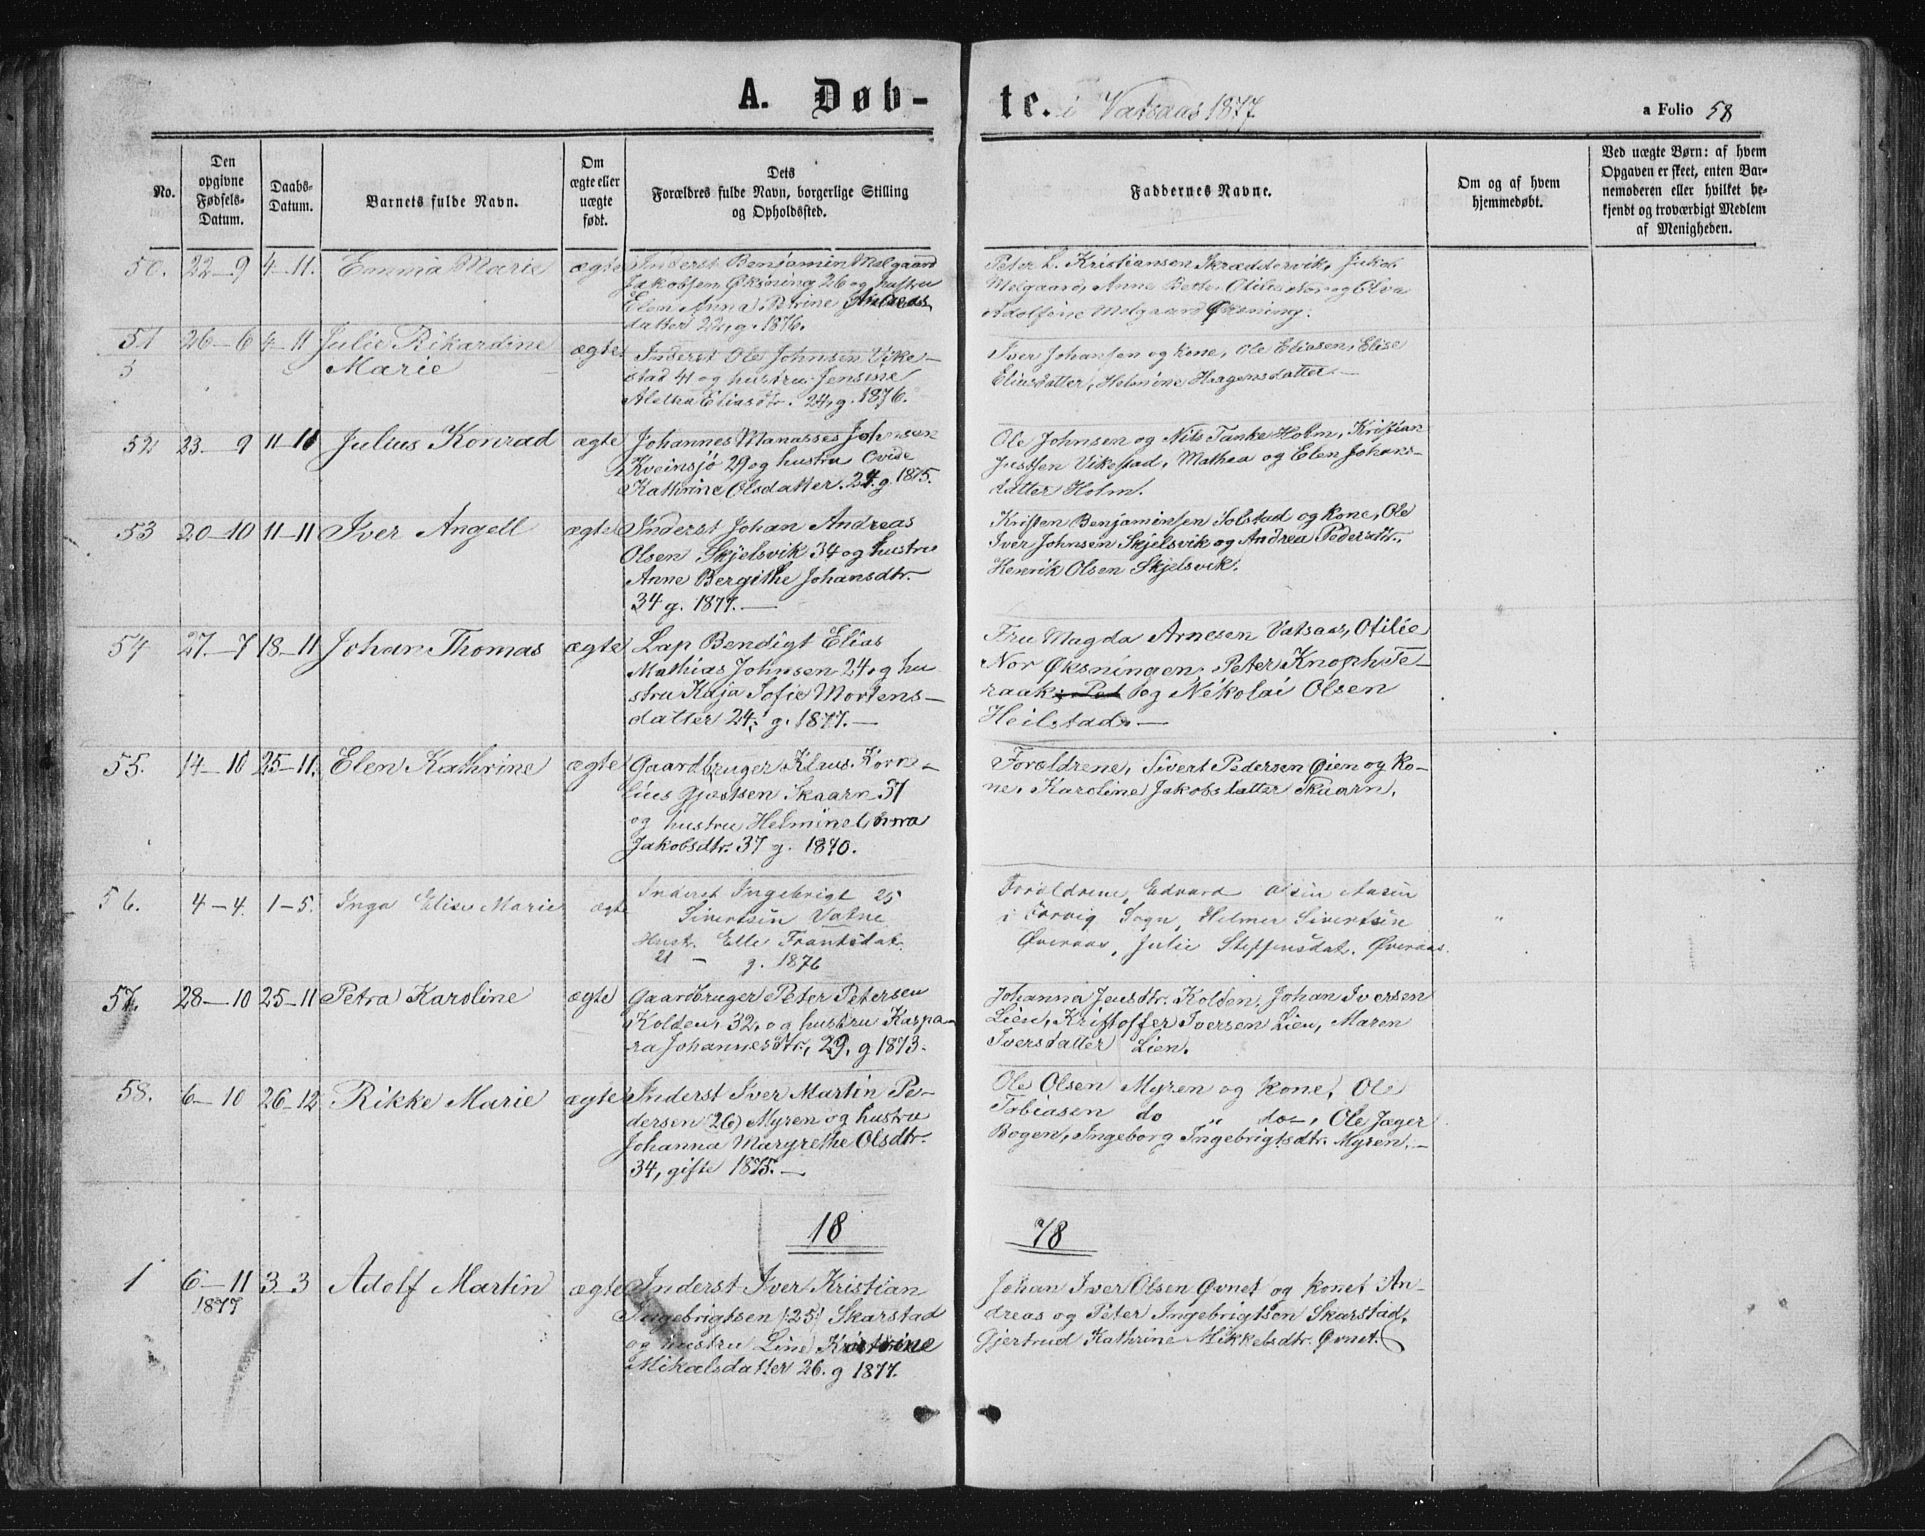 A. Døb-
te. i Vatsaas 1877
a Folio 58
No.
Den opgivne Fødsels-Datum.
Daabs-Datum.
Barnets fulde Navn.
Om ægte eller uægte født.
Dets Forældres fulde Navn, borgerlige Stilling og Opholdssted.
Faddernes Navne.
Om og af hvem hjemmedøbt.
Ved uægte Børn: af hvem Opgaven er skeet, enten Barnemoderen eller hvilket bekjendt og troværdigt Medlem af Menigheden.
50. 22-9 4-11. Emma Marie ægte
Inderst Benjamin Melgaard
Jakobsen Øksning 26 og hustru
Elen Anna Perine Andreas
datter 22, g. 1876.
Peter L. Kristiansen Skræddervik, Jakob
Melgaard, Anne Bette, Otilie Nor og Olva
Adolfine Melgaard Øksning.
51 26-6 4-11 Julie Rikardine ægte
5
Marie
Inderst Ole Johnsen Vike-
stad 41 og hustru Jensine
Aletha Eliasdtr. 24, g. 1876.
Iver Johansen og kone, Ole Eliasen, Elise
Eliasdatter, Helmine Haagensdatter.
52 23.-9 11-11 Julius Konrad ægte
Johannes Manasses Johnsen
Kveinsjø 29 og hustru Ovide
Kathrine Olsdatter. 24. g. 1875.
Ole Johnsen og Nils Tanke Holm, Kristian
Justsen Vikestad, Mathea og Elen Johans-
datter Holm.
53 20-10 11-11 Iver Angell ægte
Inderst Johan Andreas
Olsen Skjelsvik 34 og hustru
Anne Bergithe Johansdtr.
34 g. 1877.—
Kristen Benjaminsen Solstad og kone, Ole
Iver Johnsen Skjelsvik og Andrea Pedersdtr.
Henrik Olsen Skjelsvik.
54 27.-7 18-11 Johan Thomas ægte
Lap Bendigt Elias
Mathias Johnsen 24, g hu
stru Kaja Sofie Mortens-
datter 24, g. 1877.—
Fru Magda Arnesen Vatsaas, Otilie
Nor Øksningen, Peter Knoph Te-
raak, Pet og Nikolai Olsen
Heilstad.—
55. 14-10 25-11. Elen Kathrine ægte
Gaardbruger Klaus Korne-
lius Gjæstsen Skaarn 51
og hustru Helmine Anna
Jakobsdtr. 37 g. 1870.
Forældrene, Sivert Pedersen Øien og ko-
ne, Karoline Jakobsdatter Skaarn.
56. 4-4. 1-5. Inga Elise Marie ægte
Inderst Ingebrigt 25
Sivertsen Vatne
Hust. Elle Frantsdat.
21 - g. 1876
Forældrene, Edvard Aasen
i Sogn, Helmer Sivertsen
Øveraas, Julie Steffensdat. Øveraas.
57. 28-10 25-11 Petra Karoline ægte
Gaardbruger Peter Petersen
Kolden, 32, og hustru Kaspa-
ra Johannesdtr., 29, g 1873.
Johanna Jensdtr. Kolden, Johan Iversen
Lien, Kristoffer Iversen Lien, Maren
Iversdatter Lien.
58. 6-10 26-12 Rikke Marie ægte
Inderst Iver Martin Pe-
dersen (26) Myren og hustru
Johanna Margrethe Olsdtr.
34, gifte 1875.—
Ole Olsen Myren og kone, Ole
Tobiasen do „ do-, Ole Jæger
Bogen, Ingeborg Ingebrigtsdtr. Myren.-
18 78
1 6-11 3-3 Adolf Martin ægte
1877
Inderst Iver Kristian
Ingebrigtsen (25) Skarstad
og hustru Line Kristine
Mikalsdatter 26. g 1877.
Johan Iver Olsen Øvnet og kone, An-
dreas og Peter Ingebrigtsen Skarstad,
Gjertrud Kathrine Mikkelsdtr. Øvnet.